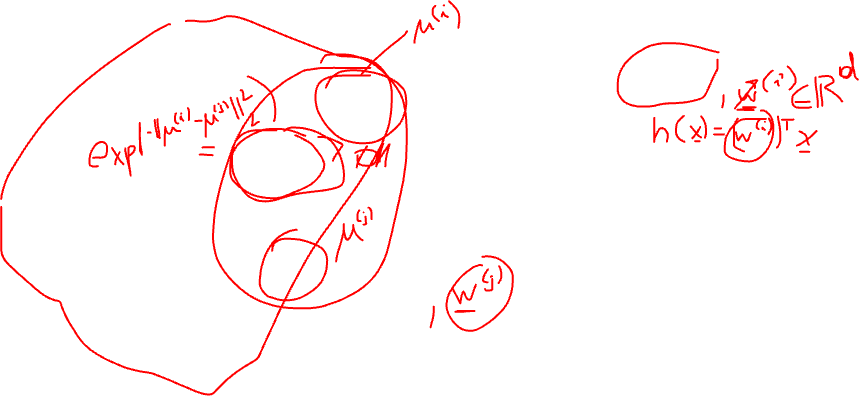 μ^(i)
exp(-‖μ^(i)-μ^(j)‖₂²)
=
μ^(j)
, w^(i) ∈ ℝ^d
h(x) = (w^(i))^T x
, w^(j)